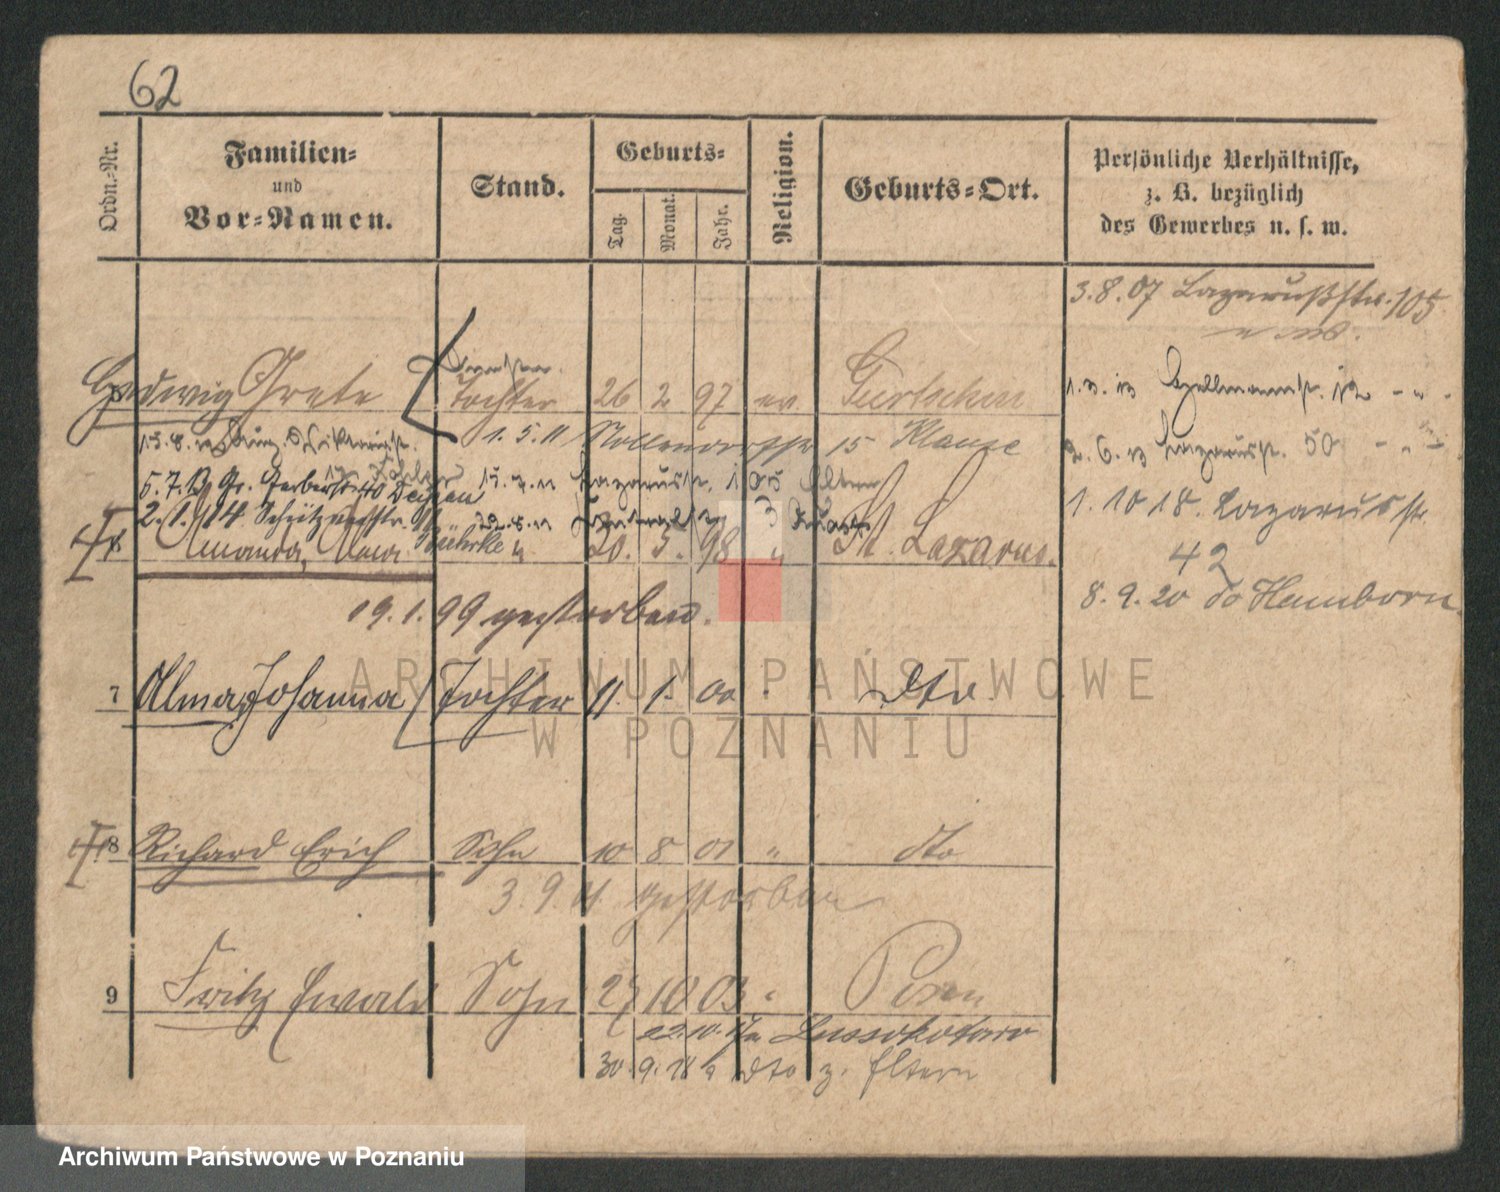 62
Ordn.-Nr.
Familien-
und
Vor-Namen.
Stand.
Geburts-
Tag.
Monat.
Jahr.
Religion.
Geburts-Ort.
Persönliche Verhältnisse,
z. B. bezüglich
des Gewerbes u. s. w.
3.8.07 Lazarusstr. 105
Hedwig Grete Tochter 26 2 97 ev. Gurtschin
1.5.11 Nollendorfstr 15 Klause
2.6.13 Lazarusstr. 50 - " -
5.7.13 Gr. Gerberstr. 40
15.7.11 Lazarusstr. 105 Eltern
1.10 18. Lazarusstr.
42
2.1.14 Schützenstr.
Amanda, Alma " 20. 5. 98 " St. Lazarus.
8.9.20 do Hamborn
19.1.99 gestorben.
7 Alma, Johanna Tochter 11. 1. 00 " dto.
8 Richard Erich Sohn 10 8 01 " dto
3.9.11. gestorben
9 Fritz Ewald Sohn 27 10 03 " Posen
22.10.17 n Lussowko
30.9.18 v dto z. Eltern
ARCHIWUM PAŃSTWOWE
W POZNANIU
Archiwum Państwowe w Poznaniu